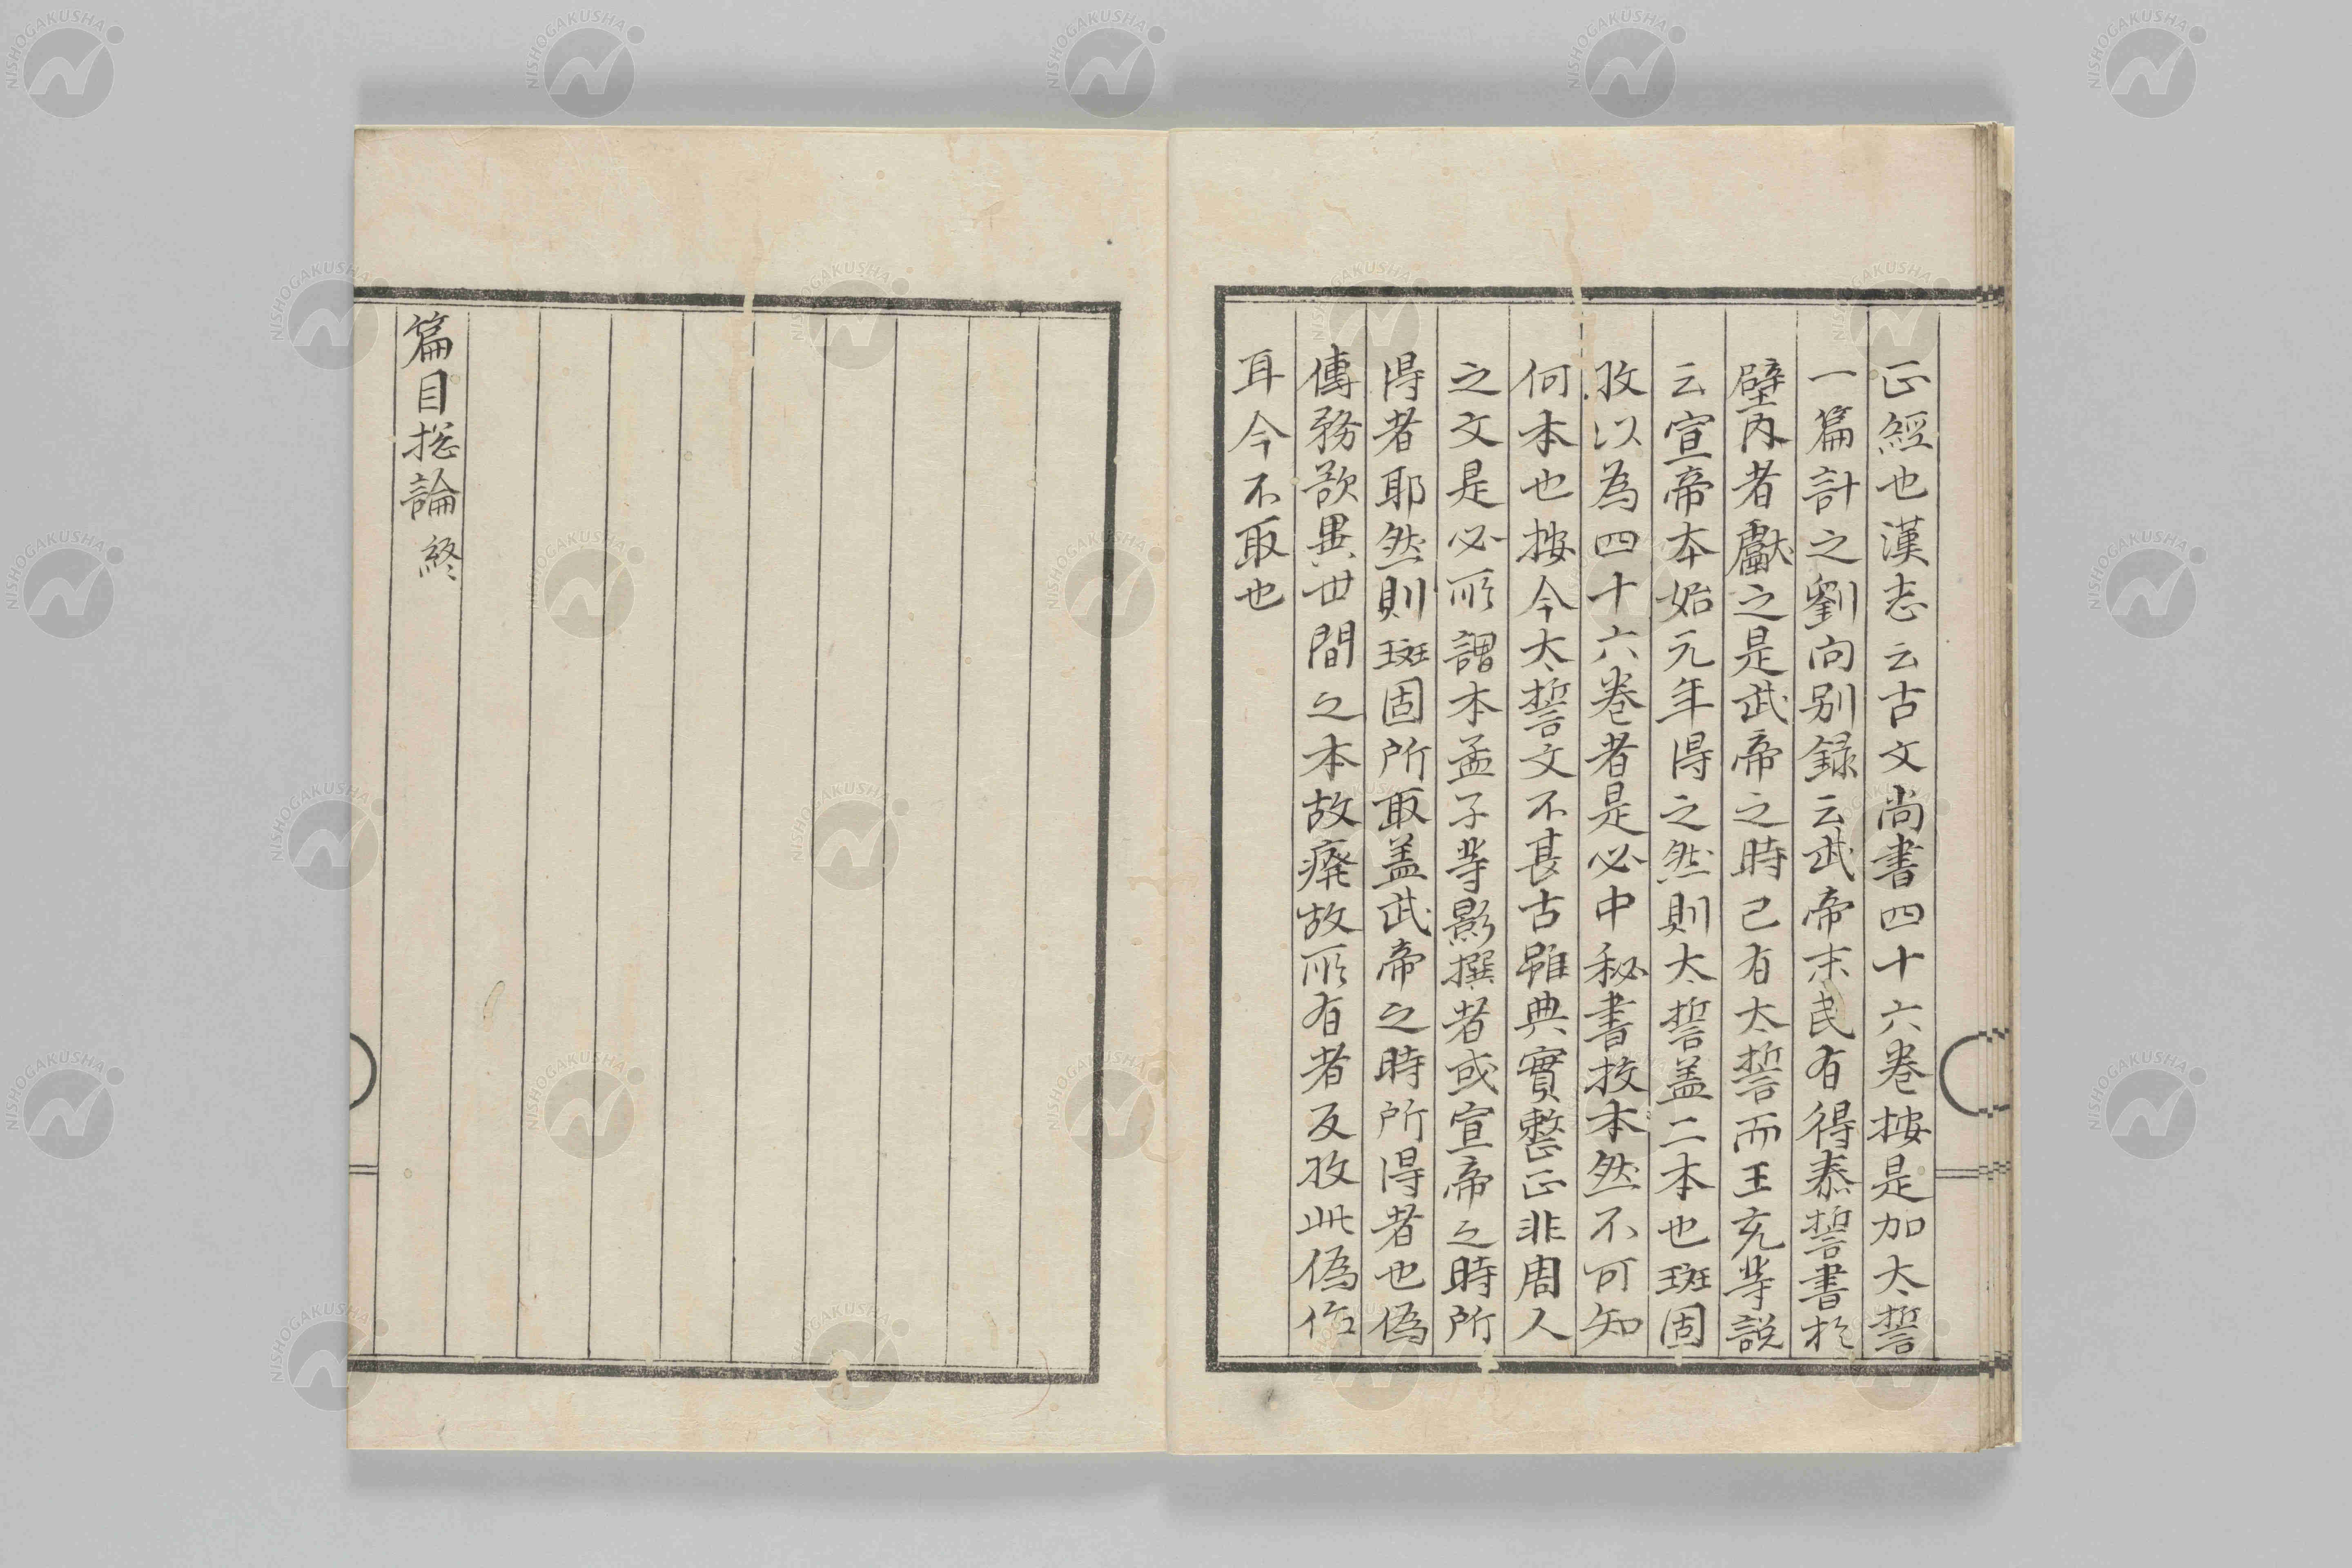 正經也漢志云古文尚書四十六卷按是加太誓
一篇計之劉向別録云武帝末民有得泰誓書於
壁内者獻之是武帝之時已有太誓而王充等説
云宣帝本始元年得之然則太誓盖二本也班固
攷以為四十六卷者是必中秘書挍本然不可知
何本也按今太誓文不甚古雖典實整正非周人
之文是必所謂本孟子等影撰者或宣帝之時所
得者耶然則班固所取盖武帝之時所得者也偽
傳務欲異世間之本故廃故所有者反攷此偽作
耳今不取也
篇目捴論終
NISHOGAKUSHA